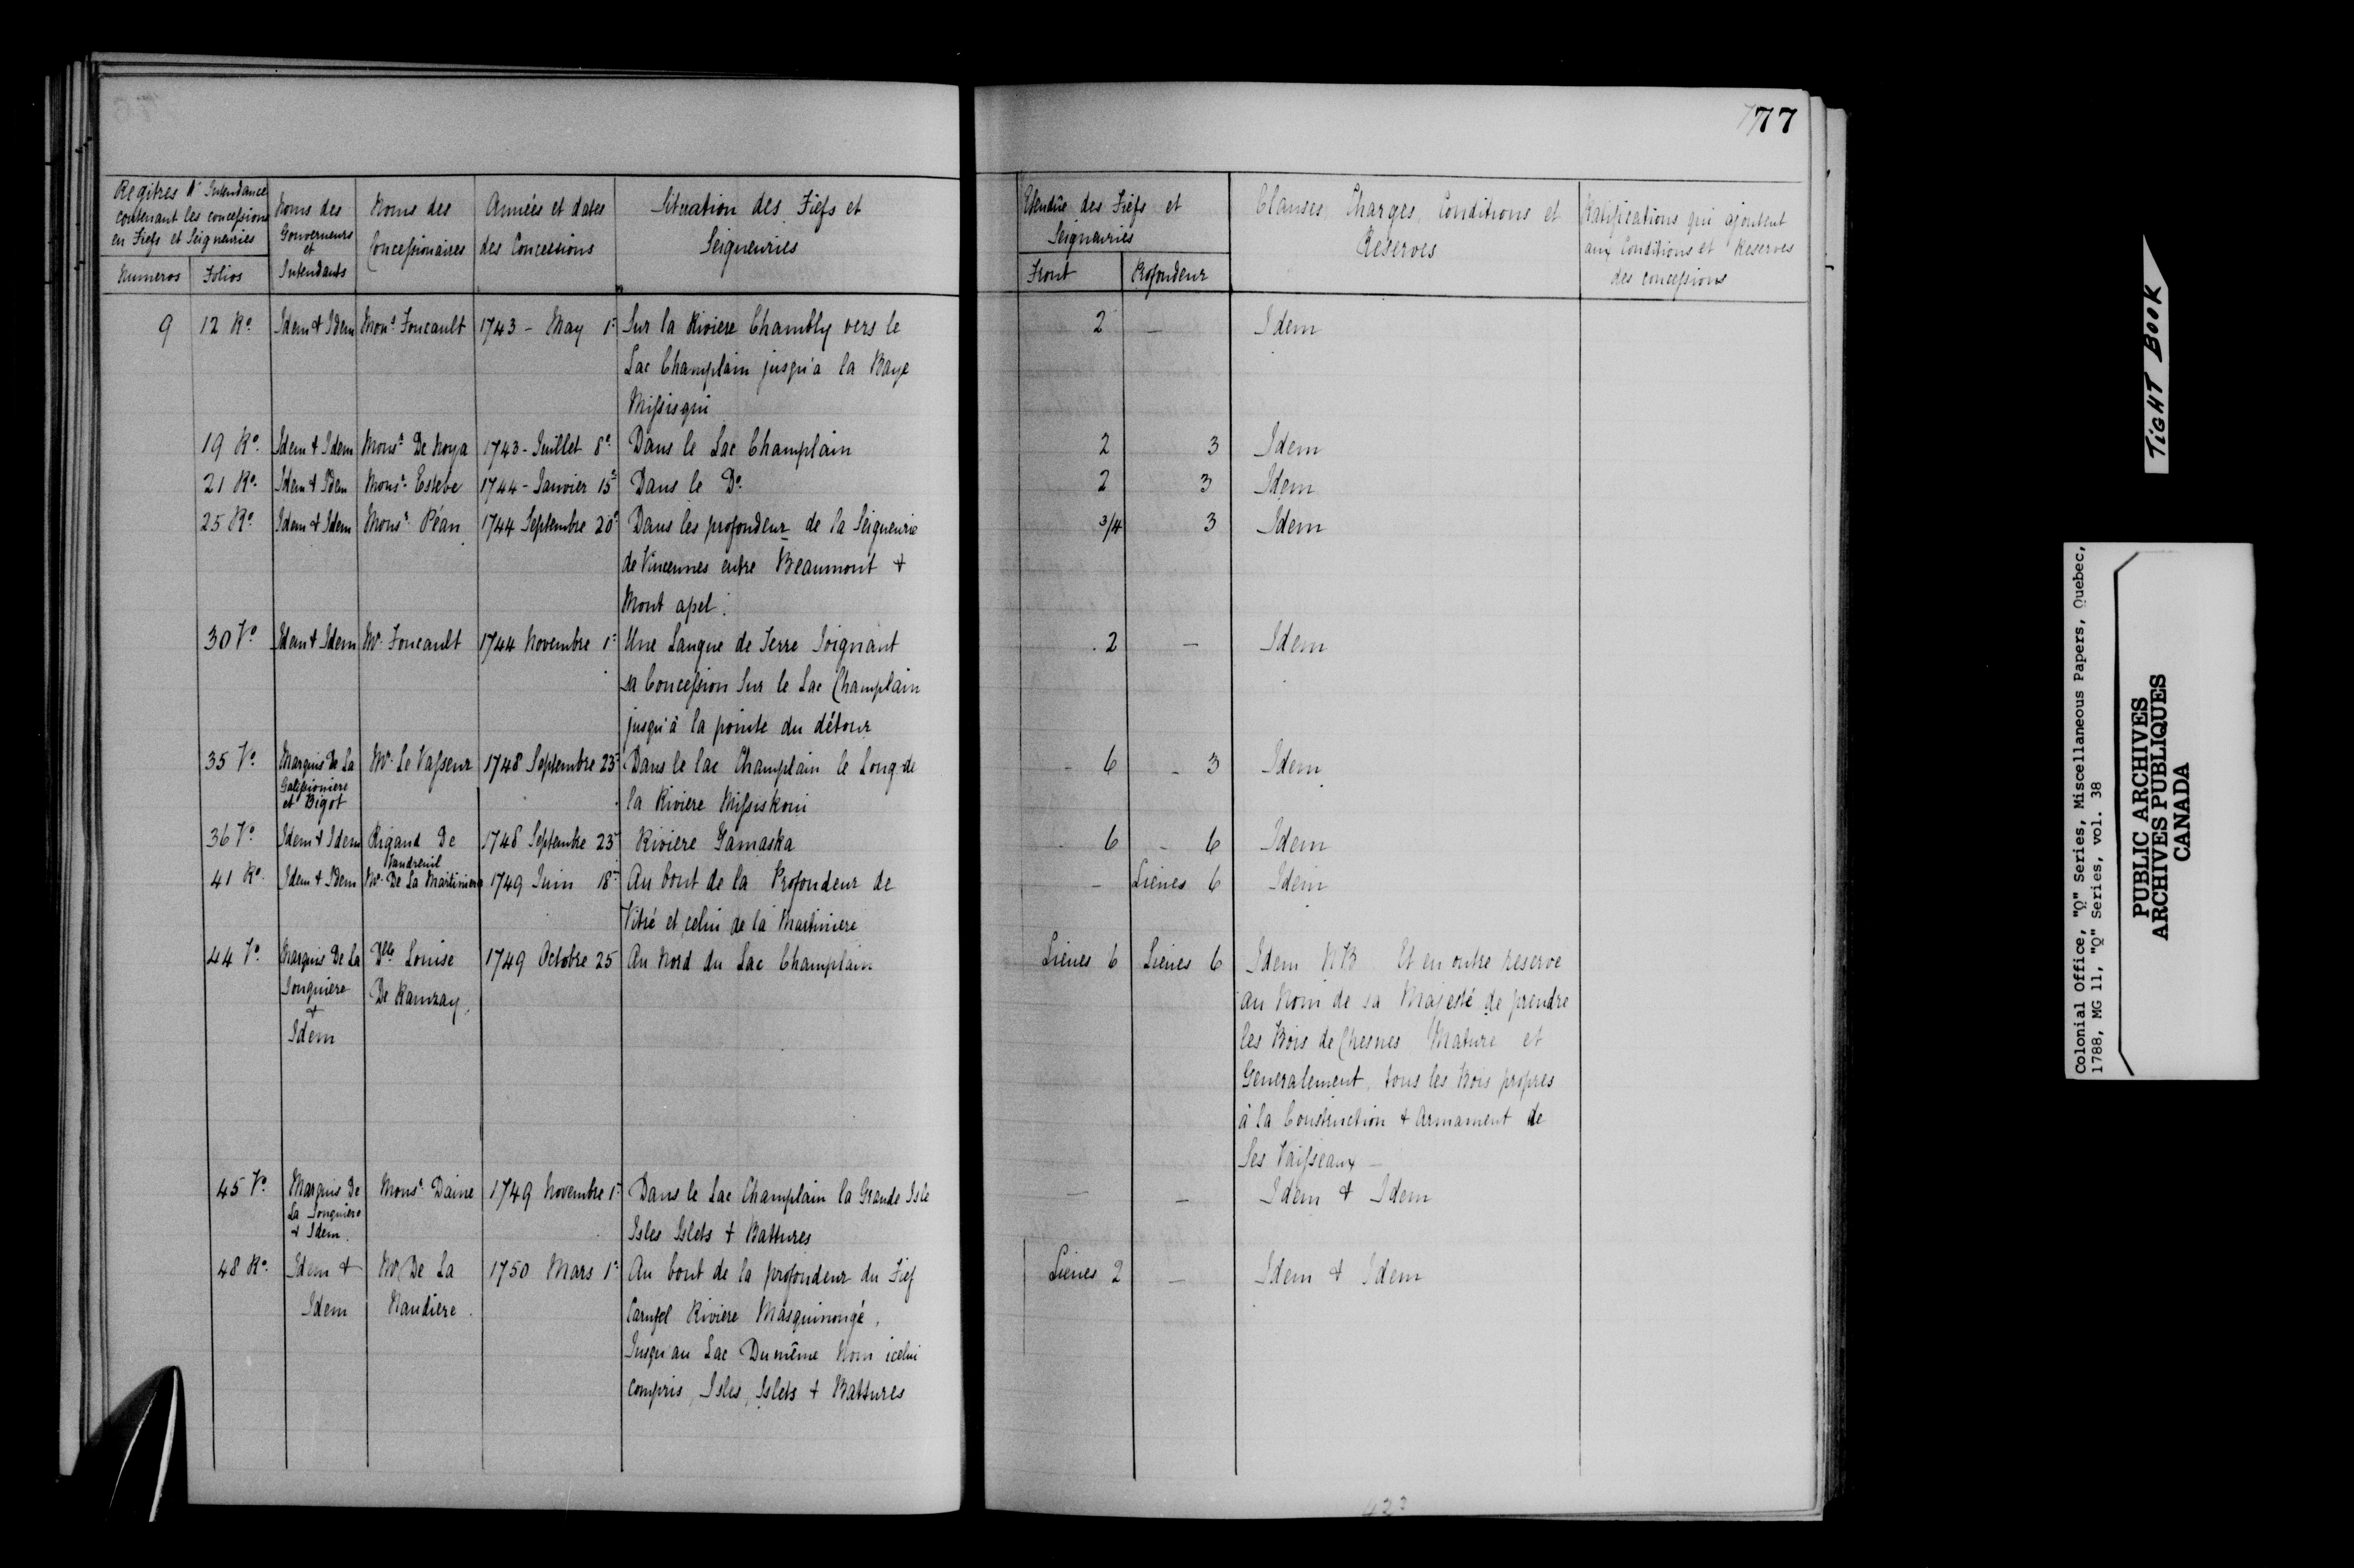 77
Regitres d'Intendance
contenant les concessions
en Fiefs et Seigneuries
Numeros Folios
Noms des
Gouverneurs
et
Intendants
Noms des
Concessionaires
Années et dates
des Concessions
Situation des Fiefs et
Seigneuries
Etendüe des Fiefs et
Seigneuries
Front Profondeur
Clauses, Charges, Conditions et
Reserves
Ratifications qui ajoutent
aux Conditions et Reserves
des concessions
9 12 Ro. Idem & Idem Monsr. Foucault 1743 - May 1r. Sur la Riviere Chambly vers le 2 — Idem
Lac Champlain jusqu'a la Baye
Missisqui
19 Ro. Idem & Idem Monsr. De Noya 1743 - Juillet 8e. Dans le Lac Champlain 2 3 Idem
21 Ro. Idem & Idem Monsr. Estebe 1744 - Janvier 15e. Dans le Do. 2 3 Idem
25 Ro. Idem & Idem Monsr. Péan 1744 Septembre 20e. Dans les profondeur de la Seigneurie 3/4 3 Idem
de Vincennes entre Beaumont &
Mont apel.
30 Vo. Idem & Idem Mr. Foucault 1744 Novembre 1r. Une Langue de Terre Joignant 2 — Idem
sa Concession Sur le Lac Champlain
jusqu'à la pointe du détour
35 Vo. Marquis De La Mr. Le Vasseur 1748 Septembre 23e. Dans le lac Champlain le Long de 6 3 Idem
Galissioniere
et Bigot
la Riviere Missiskoui
36 Vo. Idem & Idem Rigaud De 1748 Septembre 23e. Riviere Yamaska 6 6 Idem
Vaudreuil
41 Ro. Idem & Idem Mr. De La Martiniere 1749 Juin 18e. Au bout de la Profondeur de — Lieues 6 Idem
Vitré et celui de la Martiniere
44 Vo. Marquis De La Dlle Louise 1749 Octobre 25 Au Nord du Lac Champlain Lieues 6 Lieues 6 Idem NB Et en outre reserve
Jonquiere De Ramzay au Nom de sa Majesté de prendre
&
Idem les Bois de Chesnes Mature et
Generalement, tous les Bois propres
à la Construction & Armament de
Ses Vaisseaux —
45 Vo. Marquis De Monsr. Daine 1749 Novembre 1r. Dans le Lac Champlain la Grande Isle — — Idem & Idem
La Jonquiere
& Idem.
Isles Islets & Battures
48 Ro. Idem & Mr. De La 1750 Mars 1r. Au bout de la profondeur du Fief Lieues 2 — Idem & Idem
Idem Naudiere. Carufel Riviere Masquinongé,
Jusqu'au Lac Du même Nom icelui
compris, Isles, Islets & Battures
TIGHT BOOK
Colonial Office, "Q" Series, Miscellaneous Papers, Quebec,
1788, MG 11, "Q" Series, vol. 38
PUBLIC ARCHIVES
ARCHIVES PUBLIQUES
CANADA